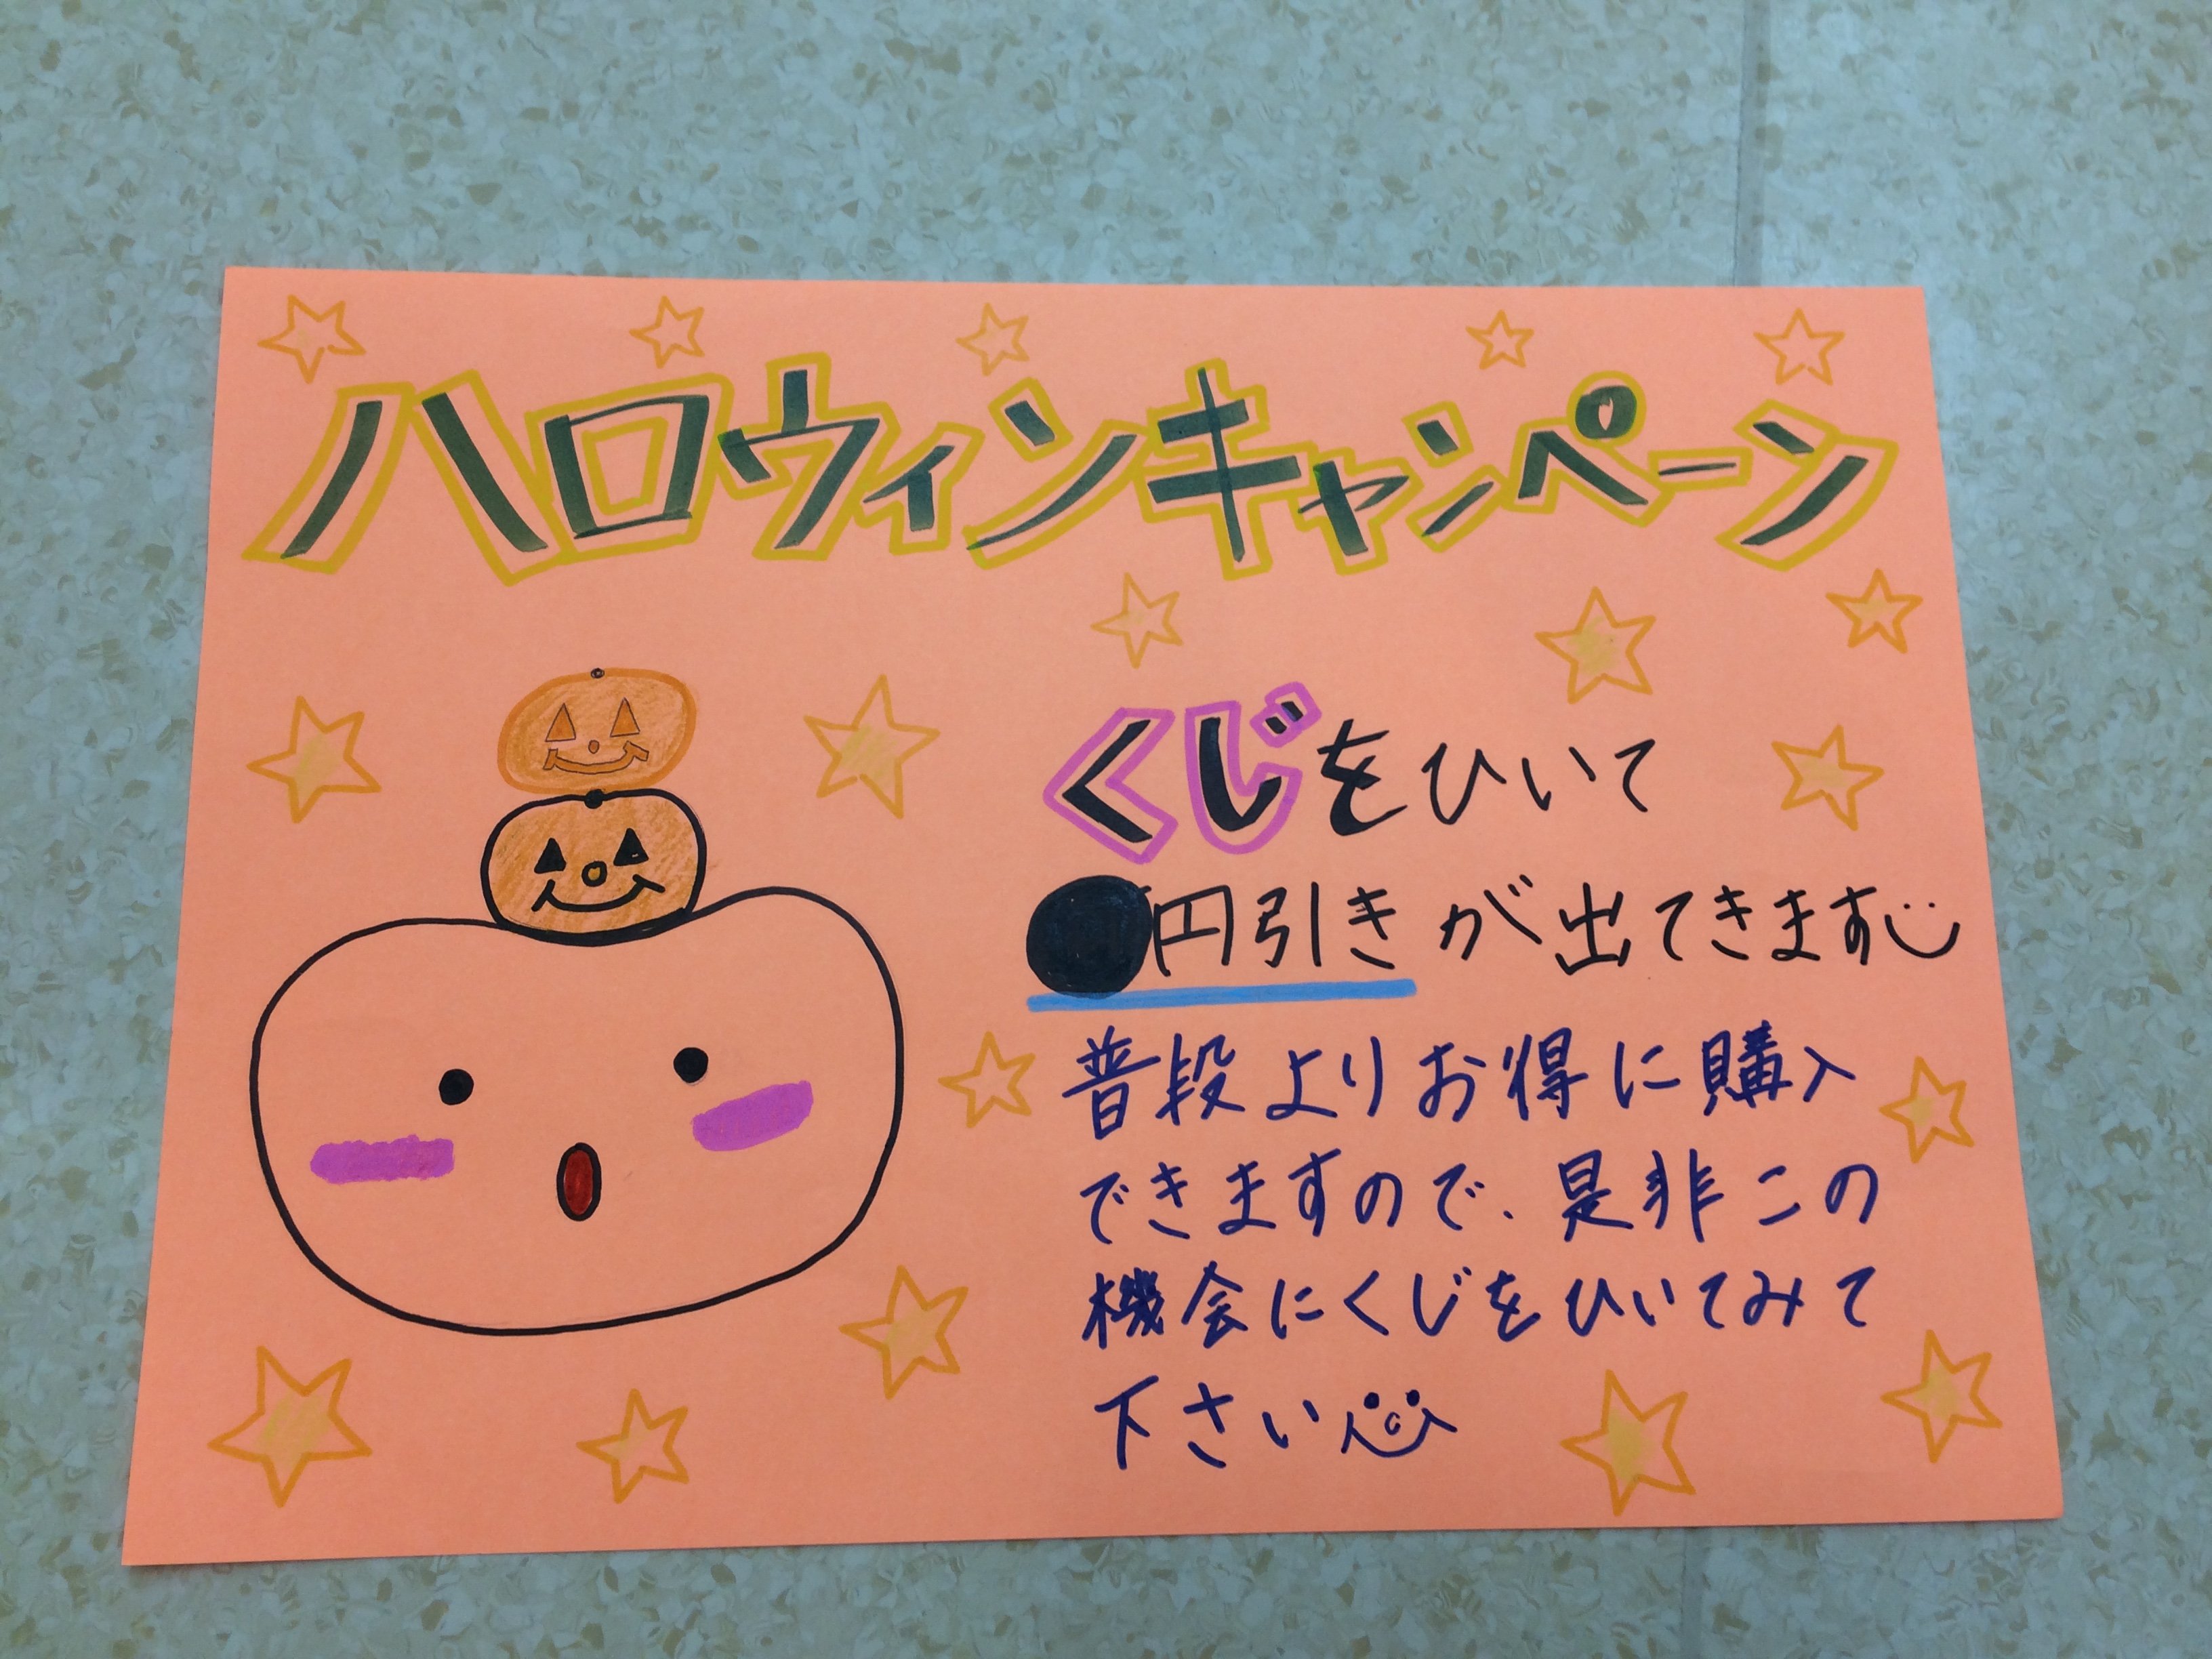 ハロウィンキャンペーン
くじをひいて
●円引きが出てきます
普段よりお得に購入
できますので、是非この
機会にくじをひいてみて
下さい